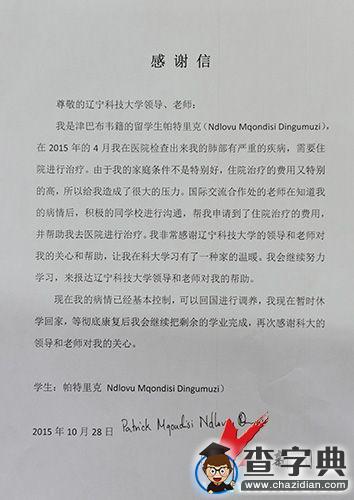 感谢信
尊敬的辽宁科技大学领导、老师:
我是津巴布韦籍的留学生帕特里克(Ndlovu Mqondisi Dingumuzi),
在 2015 年的 4 月我在医院检查出来我的肺部有严重的疾病,需要住
院进行治疗。由于我的家庭条件不是特别好,住院治疗的费用又特别
的高,所以给我造成了很大的压力。国际交流合作处的老师在知道我
的病情后,积极的同学校进行沟通,帮我申请到了住院治疗的费用,
并帮助我去医院进行治疗。我非常感谢辽宁科技大学的领导和老师对
我的关心和帮助,让我在科大学习有了一种家的温暖。我会继续努力
学习,来报达辽宁科技大学领导和老师对我的帮助。
现在我的病情已经基本控制,可以回国进行调养,我现在暂时休
学回家,等彻底康复后我会继续把剩余的学业完成,再次感谢科大的
领导和老师对我的关心。
学生:帕特里克 Ndlovu Mqondisi Dingumuzi)
2015 年 10 月 28 日 Patrick Mqondisi Ndlovu
查字典
www.chazidian.com